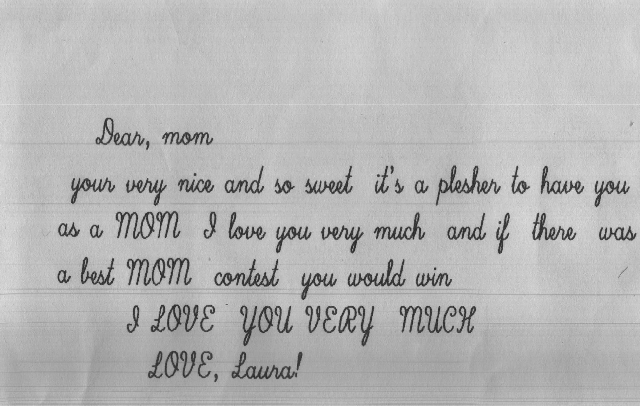 Dear, mom
your very nice and so sweet it's a plesher to have you
as a MOM I love you very much and if there was
a best MOM contest you would win
I LOVE YOU VERY MUCH
LOVE, Laura!